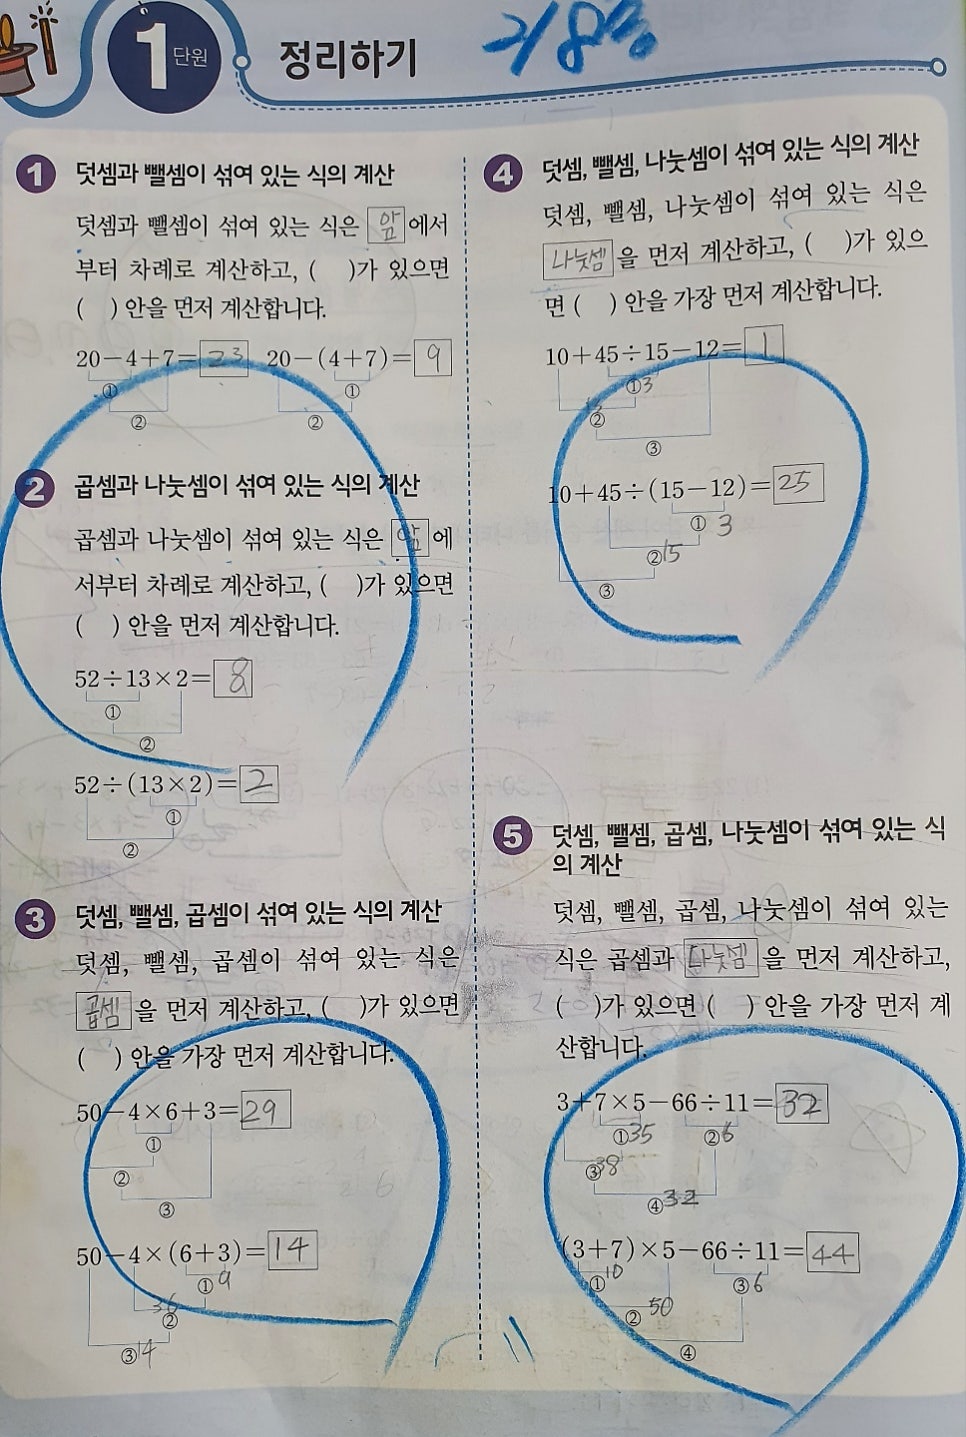 1 단원 정리하기
1 덧셈과 뺄셈이 섞여 있는 식의 계산
덧셈과 뺄셈이 섞여 있는 식은 앞 에서
부터 차례로 계산하고, ( )가 있으면
( ) 안을 먼저 계산합니다.
20-4+7=23 20-(4+7)=9
① ①
② ②
2 곱셈과 나눗셈이 섞여 있는 식의 계산
곱셈과 나눗셈이 섞여 있는 식은 앞 에
서부터 차례로 계산하고, ( )가 있으면
( ) 안을 먼저 계산합니다.
52÷13×2=8
①
②
52÷(13×2)=2
①
②
3 덧셈, 뺄셈, 곱셈이 섞여 있는 식의 계산
덧셈, 뺄셈, 곱셈이 섞여 있는 식은
곱셈 을 먼저 계산하고, ( )가 있으면
( ) 안을 가장 먼저 계산합니다.
50-4×6+3=29
①
②
③
50-4×(6+3)=14
① 9
36
②
③ 14
4 덧셈, 뺄셈, 나눗셈이 섞여 있는 식의 계산
덧셈, 뺄셈, 나눗셈이 섞여 있는 식은
나눗셈 을 먼저 계산하고, ( )가 있으
면 ( ) 안을 가장 먼저 계산합니다.
10+45÷15-12=1
① 3
13
②
③
10+45÷(15-12)=25
① 3
② 15
③
5 덧셈, 뺄셈, 곱셈, 나눗셈이 섞여 있는 식
의 계산
덧셈, 뺄셈, 곱셈, 나눗셈이 섞여 있는
식은 곱셈과 나눗셈 을 먼저 계산하고,
( )가 있으면 ( ) 안을 가장 먼저 계
산합니다.
3+7×5-66÷11=32
① 35 ② 6
③ 38
④ 32
(3+7)×5-66÷11=44
① 10 ③ 6
② 50
④